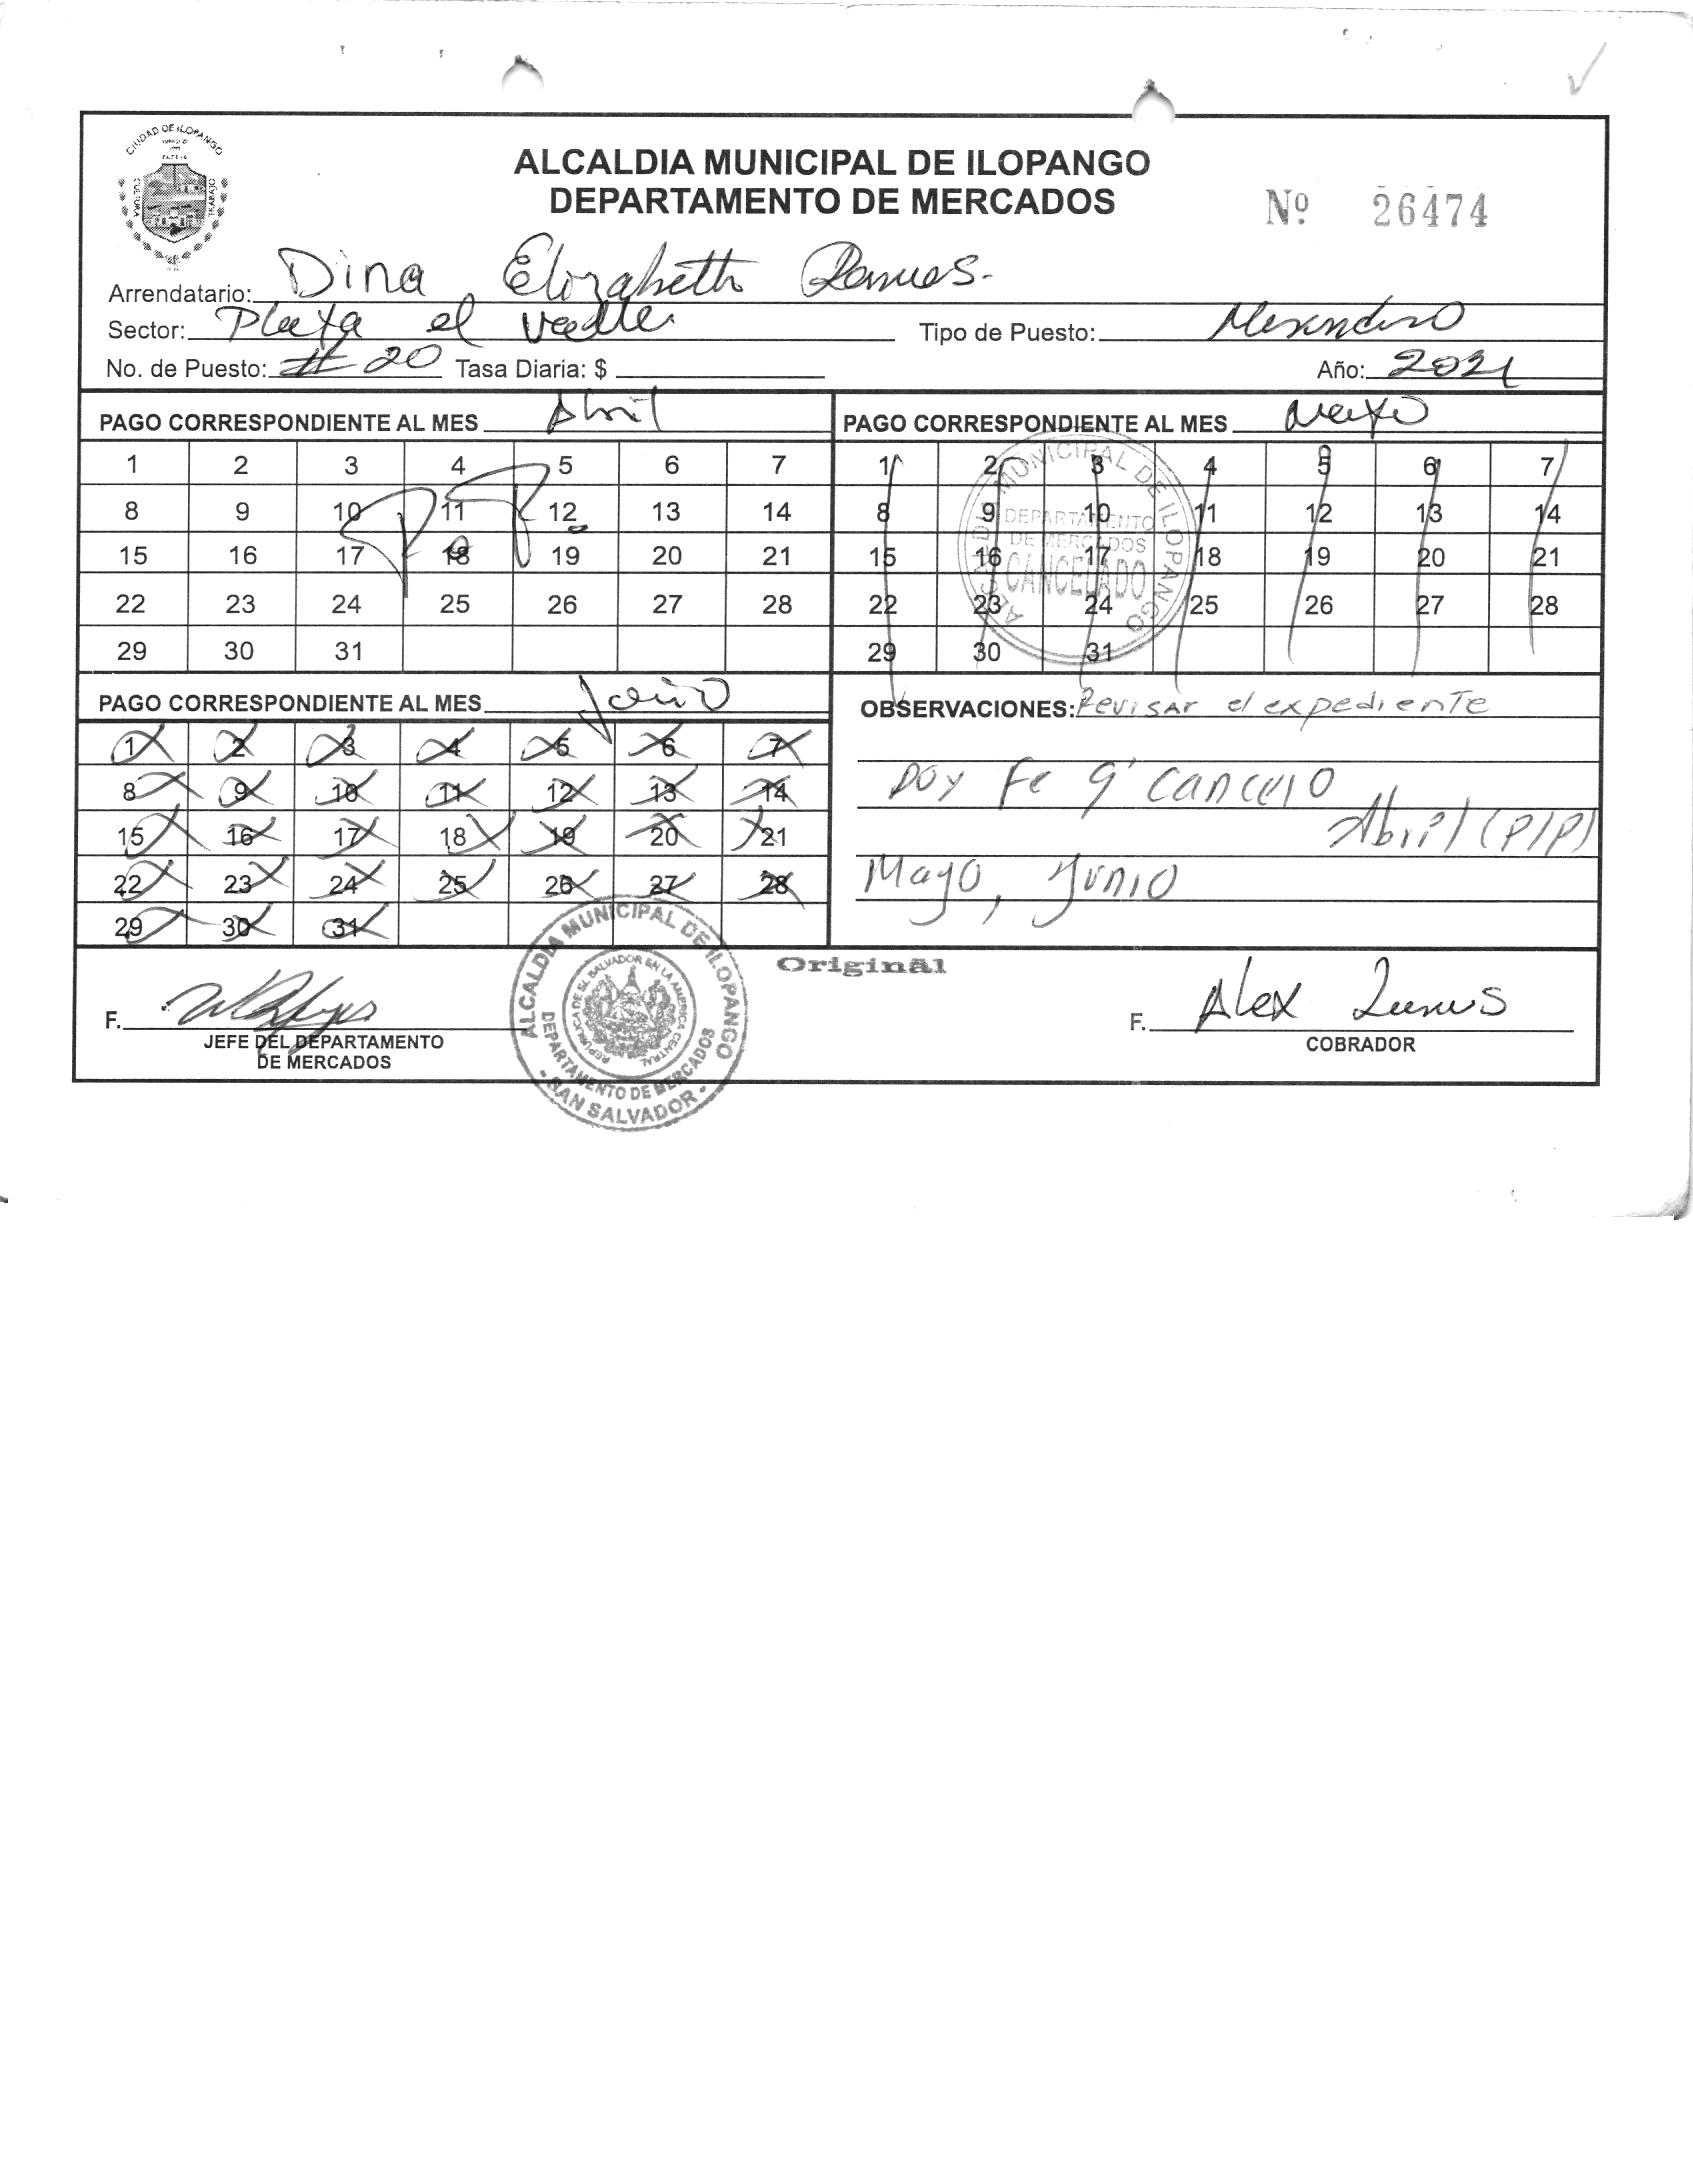 CIUDAD DE ILOPANGO
CULTURA
TRABAJO
ALCALDIA MUNICIPAL DE ILOPANGO
DEPARTAMENTO DE MERCADOS
Nº 26474
Arrendatario: Dina Elizabeth Ramos.
Sector: Plaza el valle Tipo de Puesto:
No. de Puesto: # 20 Tasa Diaria: $ Año: 2021
PAGO CORRESPONDIENTE AL MES Abril
1 2 3 4 5 6 7
8 9 10 11 12 13 14
15 16 17 18 19 20 21
22 23 24 25 26 27 28
29 30 31
P.P.
PAGO CORRESPONDIENTE AL MES Mayo
1 2 3 4 5 6 7
8 9 10 11 12 13 14
15 16 17 18 19 20 21
22 23 24 25 26 27 28
29 30 31
ALCALDIA MUNICIPAL DE ILOPANGO
DEPARTAMENTO
DE MERCADOS
CANCELADO
PAGO CORRESPONDIENTE AL MES Junio
1 2 3 4 5 6 7
8 9 10 11 12 13 14
15 16 17 18 19 20 21
22 23 24 25 26 27 28
29 30 31
OBSERVACIONES: Revisar el expediente
Doy Fe q' cancelo
Abril (P/P)
Mayo, Junio
Original
F.
JEFE DEL DEPARTAMENTO
DE MERCADOS
ALCALDIA MUNICIPAL DE ILOPANGO
REPUBLICA DE EL SALVADOR EN LA AMERICA CENTRAL
DEPARTAMENTO DE MERCADOS
- SAN SALVADOR -
F. Alex
COBRADOR